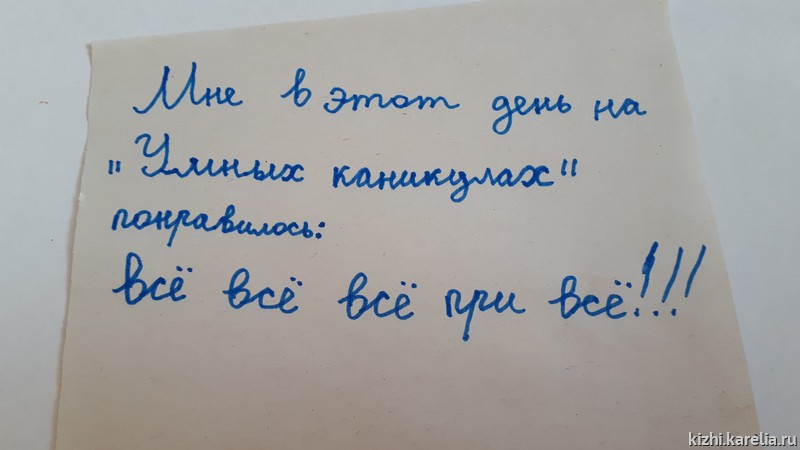 Мне в этот день на
„Умных каникулах"
понравилось:
всё всё всё при всё!!!
kizhi.karelia.ru